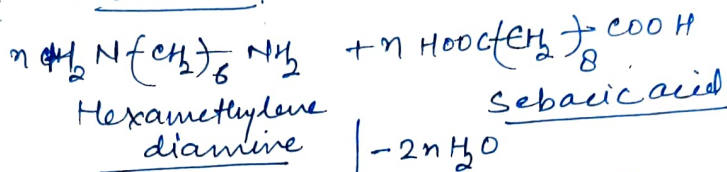 n H₂N-(CH₂)₆-NH₂ + n HOOC-(CH₂)₈-COOH
Hexamethylene diamine
Sebacic acid
-2nH₂O